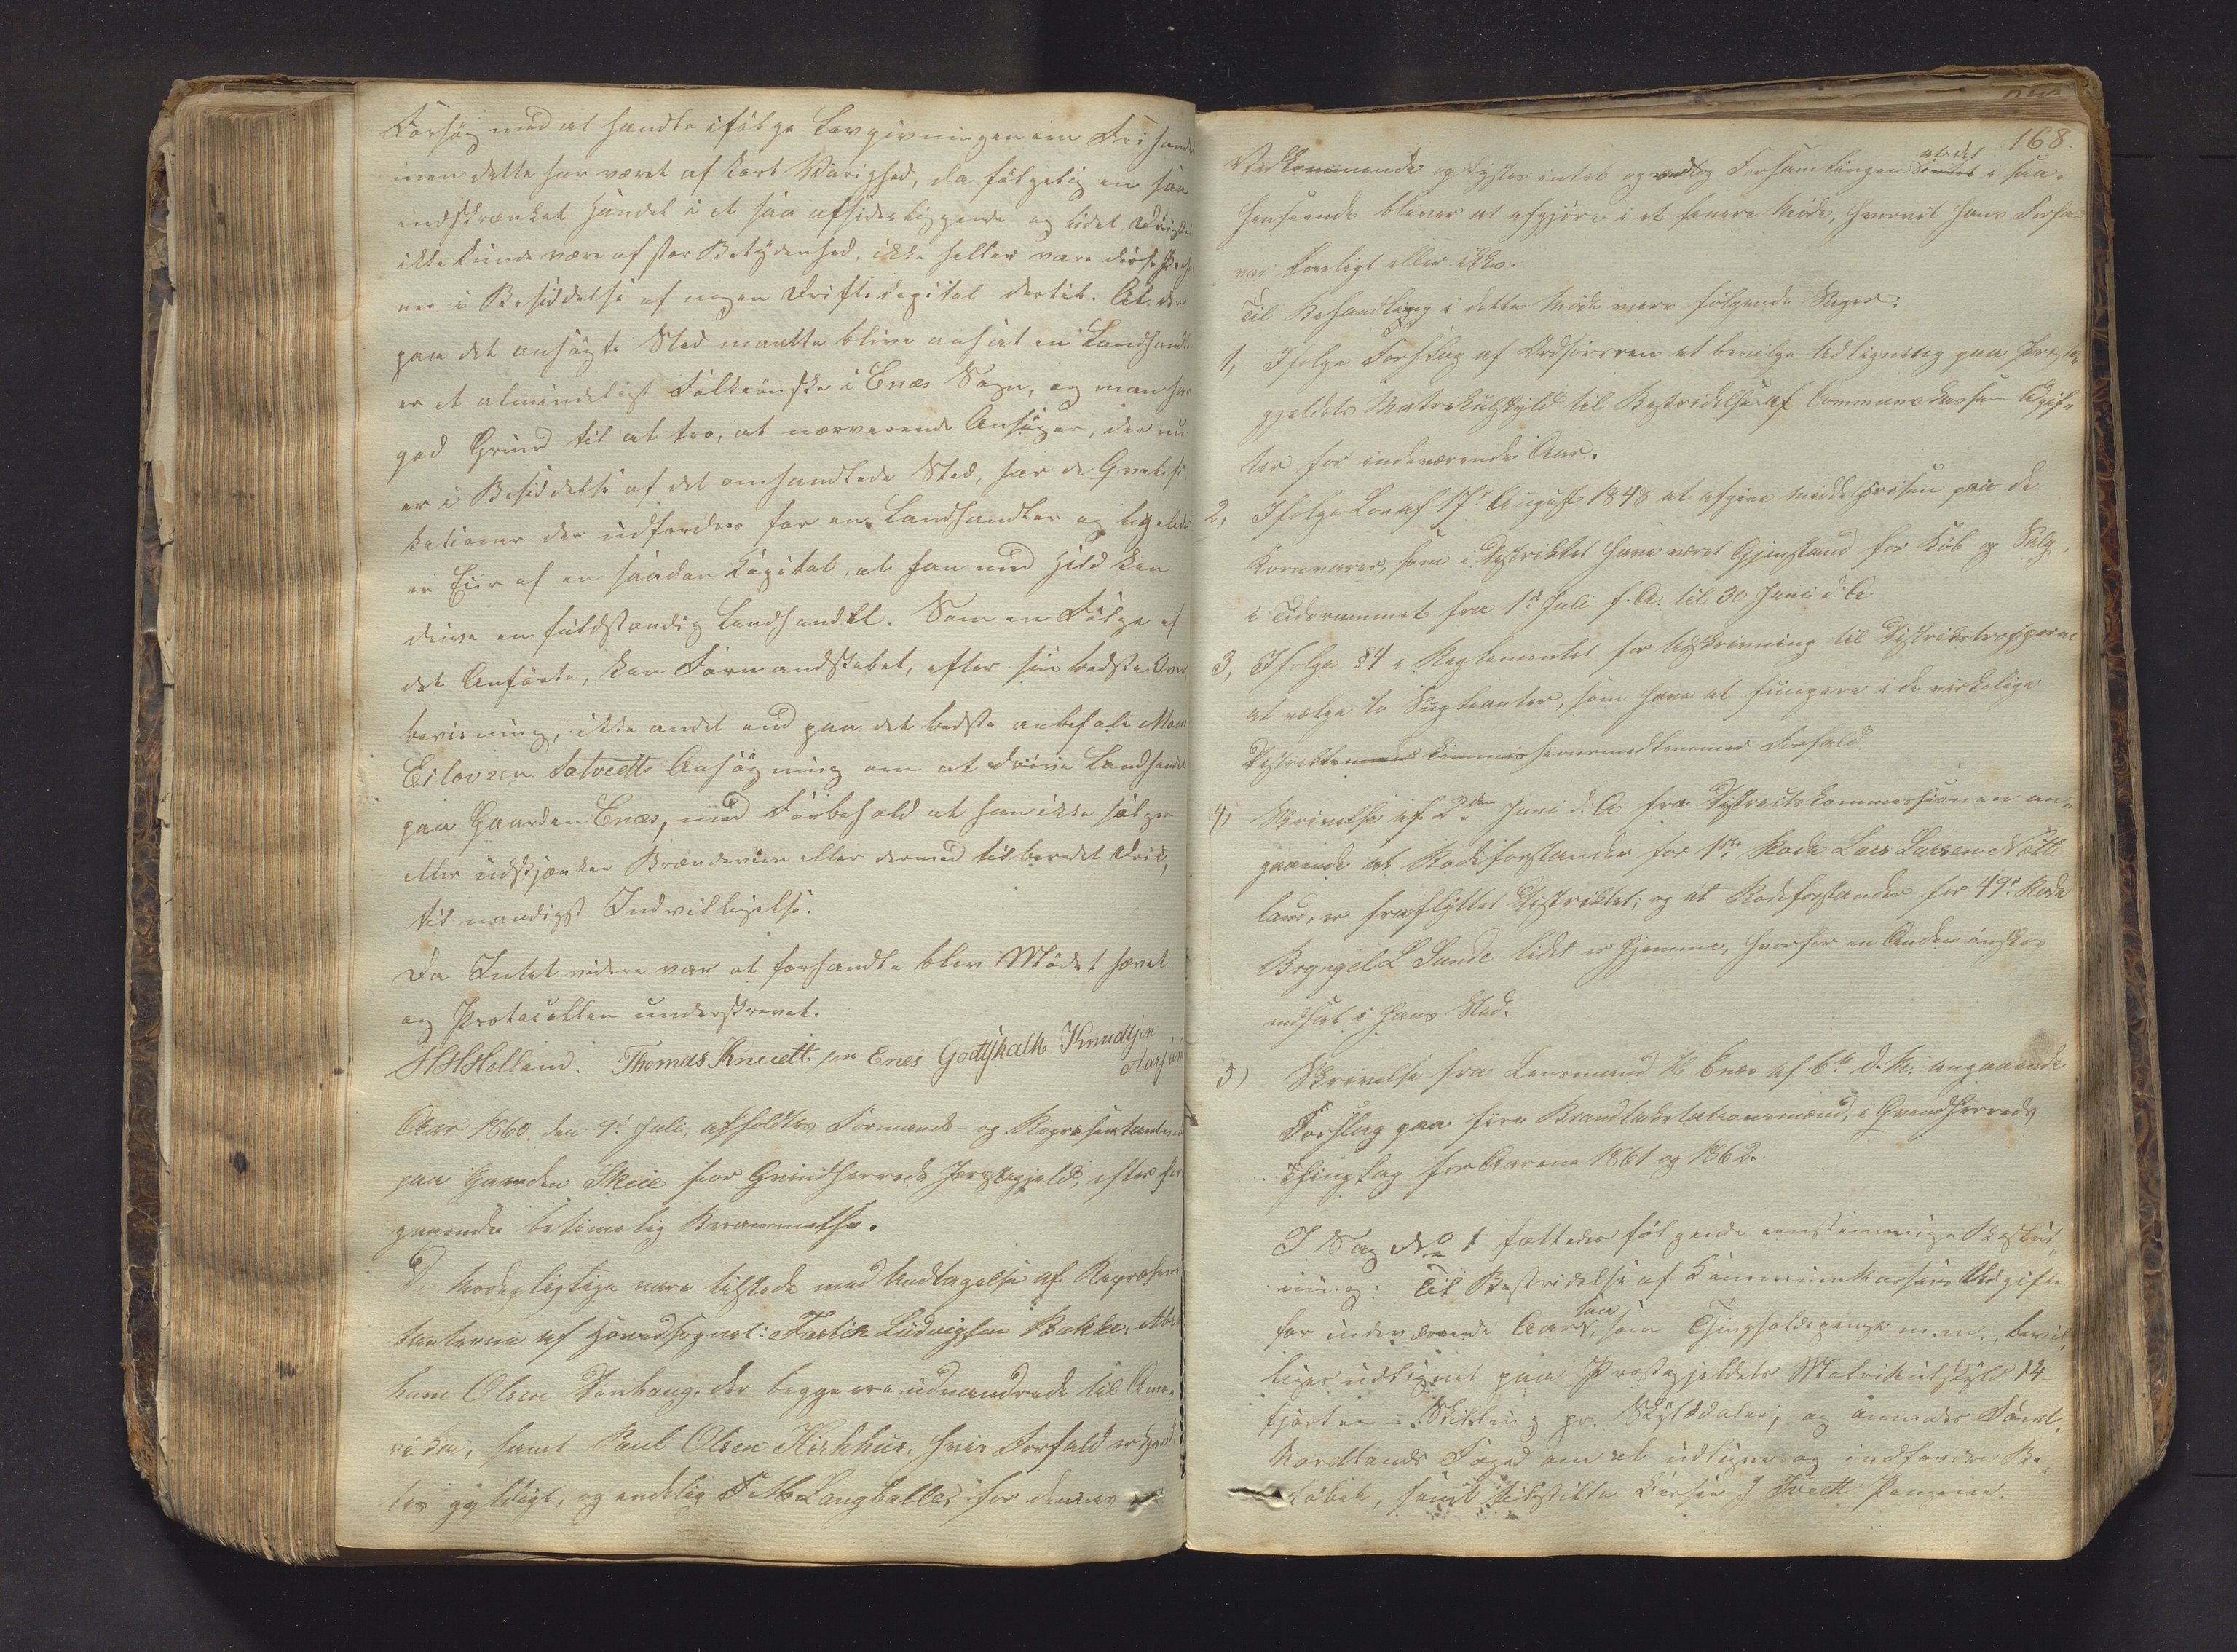 Forsøg med at handle ifølge Lovgivningen om Fri hand
men dette har været af kort Varighed, da følgelig en saa
indskrænket Handel i et saa afsidesliggende og lidet
ikke kunde være af stor Betydenhed, ikke heller vare disse Perso
ner i Besiddelse af nogen Driftscapital dertil. At der
paa det ansøgte Sted maatte blive ansat en Landhandl
er et almindeligt Folkeønske i Enæs Sogn, og man har
god Grund til at tro, at nærværende Ansøger, der nu
er i Besiddelse af det omhandlede Sted, har de Qvalifi
kationer der udfordres for en Landhandler og ligeledes
er Eier af en saadan Kapital, at han med Held kan
drive en fuldstændig Landhandel. Som en Følge af
det Anførte, kan Formandskabet, efter sin bedste Over
beviisning, ikke andet end paa det bedste anbefale Mons
Eilovsen Satvedts Ansøgning om at drive Landhandel
paa Gaarden Enæs, med Forbehold at han ikke sælger
eller udskjænker Brændeviin eller dermed tilberedet Drik,
til naadigst Indvilligelse.
Da Intet videre var at forhandle blev Mødet hævet
og Protocollen underskrevet.
HHHelland. Thomas Knuett sen Enes Godtskalk Knudtsen
Aar 1860. den 9de Juli, afholdtes Formands- og Repræsentantmø
paa Gaarden Skeie for Qvindherreds Præstegjeld, efter for
gaaende betimelig Berammelse.
De Mødepligtige vare tilstede med Undtagelse af Repræsen
tanterne af Hovedsognet: Ludvigsen Bakke,
ham Olsen der begge ere udvandrede til Ame-
rika, samt Poul Olsen Kirkhus, hvis Forfald
tes gyldigt, og endelig F M Langballe, for dennes
168.
Vedkommende oplystes intet og vedtog Forsamlingen at det i saa-
Henseende bliver at afgjøre i et senere Møde, hvorvidt hans Forfa
var Lovligt eller ikke.
Til Behandling i dette Møde vare følgende Sager:
1, Ifølge Forslag af Ordføreren at bevilge Udligning paa Præste-
gjeldets Matrikulskyld til Bestridelse af Communekassens Udgif-
ter for indeværende Aar.
2, Ifølge Lov af 17de August 1848 at afgive Middelprisen paa de
Kornvarer, som i Distriktet have været Gjenstand for Køb og Salg,
i Tidsrummet fra 1ste Juli f. A. til 30 Juni d. A.
3, Ifølge § 4 i Reglementet for Udskrivning til Distriktstropperne
at vælge to Supleanter, som have at fungere i de virkelige
Distriktskommissionsmedlemmer Forfald
4, Skrivelse af 2den Juni d. A. fra Distriktskommissionen an-
gaaende at Rodeforstander for 1ste Rode Lars Larsen Nætte
land, er fraflyttet Distriktet; og at Rodeforstander for 49de Rode
Bryngel L Sunde lidet er hjemme, hvorfor en Anden ønskes
indsat i hans Sted.
5) Skrivelse fra Lensmand K Enæs af 6te d. M. angaaende
Forslag paa fire Brandtakstationsmænd, i Qvindherreds
Thinglag for Aarene 1861 og 1862.
I Sag No 1 fattedes følgende eenstemmige Beslut-
ning: Til Bestridelse af Kommunekassens Udgifte
for indeværende Aar, saa som Thingholdspenge m. m., bevil-
liges udlignet paa Præstegjeldets Matrikulskyld 14
fjorten - Skilling pr. Skylddaler, og anmodes Sønd-
hordlands Foged om at udligne og indfordre Be-
løbet, samt tilstille Kasserer J Tvedt Pengene.